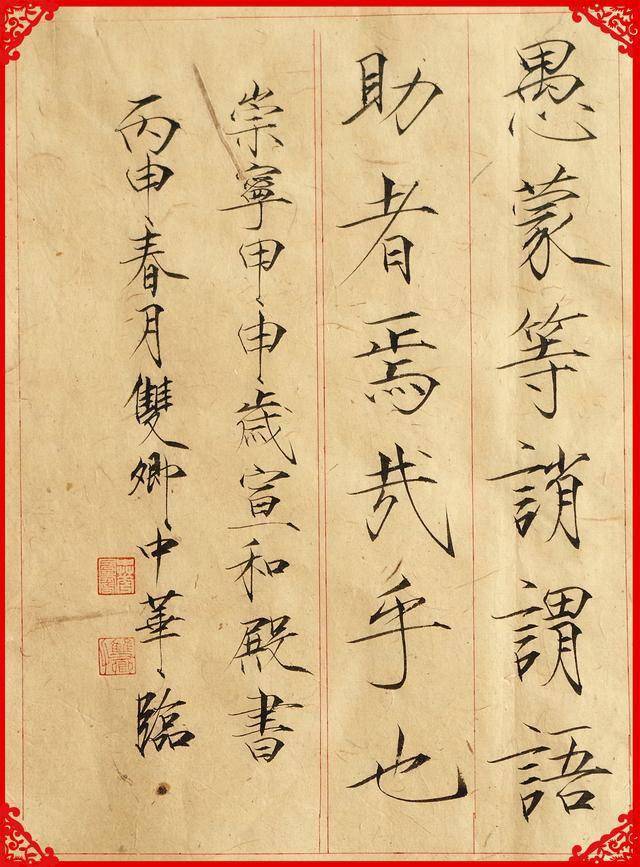 愚蒙等誚謂語
助者焉哉乎也
崇寧甲申歲宣和殿書
丙申春月雙卿中華臨